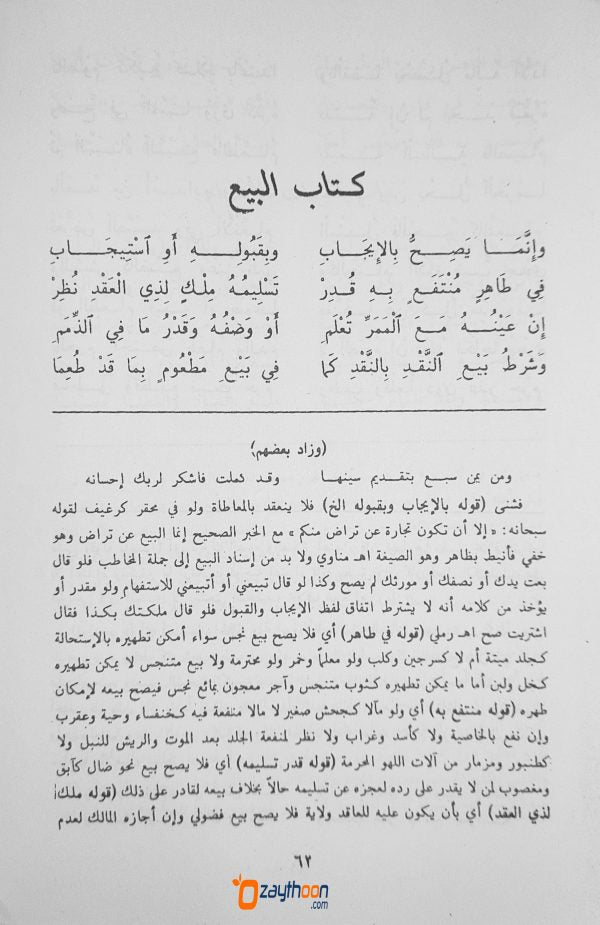 كتاب البيع
وإِنَّمَا يَصِحُّ بِالإِيجَابِ وبِقَبُولِهِ أَوِ ٱسْتِيجَابِ
فِي طَاهِرٍ مُنْتَفَعٍ بِهِ قُدِرْ تَسْلِيمُهُ مِلْكٍ لِذِي الْعَقْدِ نُظِرْ
إِنْ عَيْنُهُ مَعَ ٱلْمَمَرِّ تُعْلَمِ أَوْ وَصْفُهُ وَقَدْرُ مَا فِي ٱلذِّمَمِ
وَشَرْطُ بَيْعِ ٱلنَّقْدِ بِالنَّقْدِ كَمَا فِي بَيْعِ مَطْعُومٍ بِمَا قَدْ طُعِمَا
(وزاد بعضهم)
ومن يمن سبع بتقديم سينها وقد كملت فاشكر لربك إحسانه
فشنى (قوله بالإيجاب وبقبوله الخ) فلا ينعقد بالمعاطاة ولو في محقر كرغيف لقوله
سبحانه: «إلا أن تكون تجارة عن تراض منكم» مع الخبر الصحيح إنما البيع عن تراض وهو
خفي فأنيط بظاهر وهو الصيغة اهـ مناوي ولا بد من إسناد البيع إلى جملة المخاطب فلو قال
بعت يدك أو نصفك أو مورثك لم يصح وكذا لو قال تبيعني أو أتبيعني للاستفهام ولو مقدر أو
يؤخذ من كلامه أنه لا يشترط اتفاق لفظ الإيجاب والقبول فلو قال ملكتك بكذا فقال
اشتريت صح اهـ رملي (قوله في طاهر) أي فلا يصح بيع نجس سواء أمكن تطهيره بالإستحالة
كجلد ميتة أم لا كسرجين وكلب ولو معلماً وخمر ولو محترمة ولا بيع متنجس لا يمكن تطهيره
كخل ولبن أما ما يمكن تطهيره كثوب متنجس وآجر معجون بمائع نجس فيصح بيعه لإمكان
طهره (قوله منتفع به) أي ولو مآلا كجحش صغير لا مالا منفعة فيه كخنفساء وحية وعقرب
وإن نفع بالخاصية ولا كأسد وغراب ولا نظر لمنفعة الجلد بعد الموت والريش للنبل ولا
كطنبور ومزمار من آلات اللهو المحرمة (قوله قدر تسليمه) أي فلا يصح بيع نحو ضال كآبق
ومغصوب لمن لا يقدر على رده لعجزه عن تسليمه حالاً بخلاف بيعه لقادر على ذلك (قوله ملك
لذي العقد) أي بأن يكون عليه للعاقد ولاية فلا يصح بيع فضولي وإن أجازه المالك لعدم
٦٢
zaythoon
.com